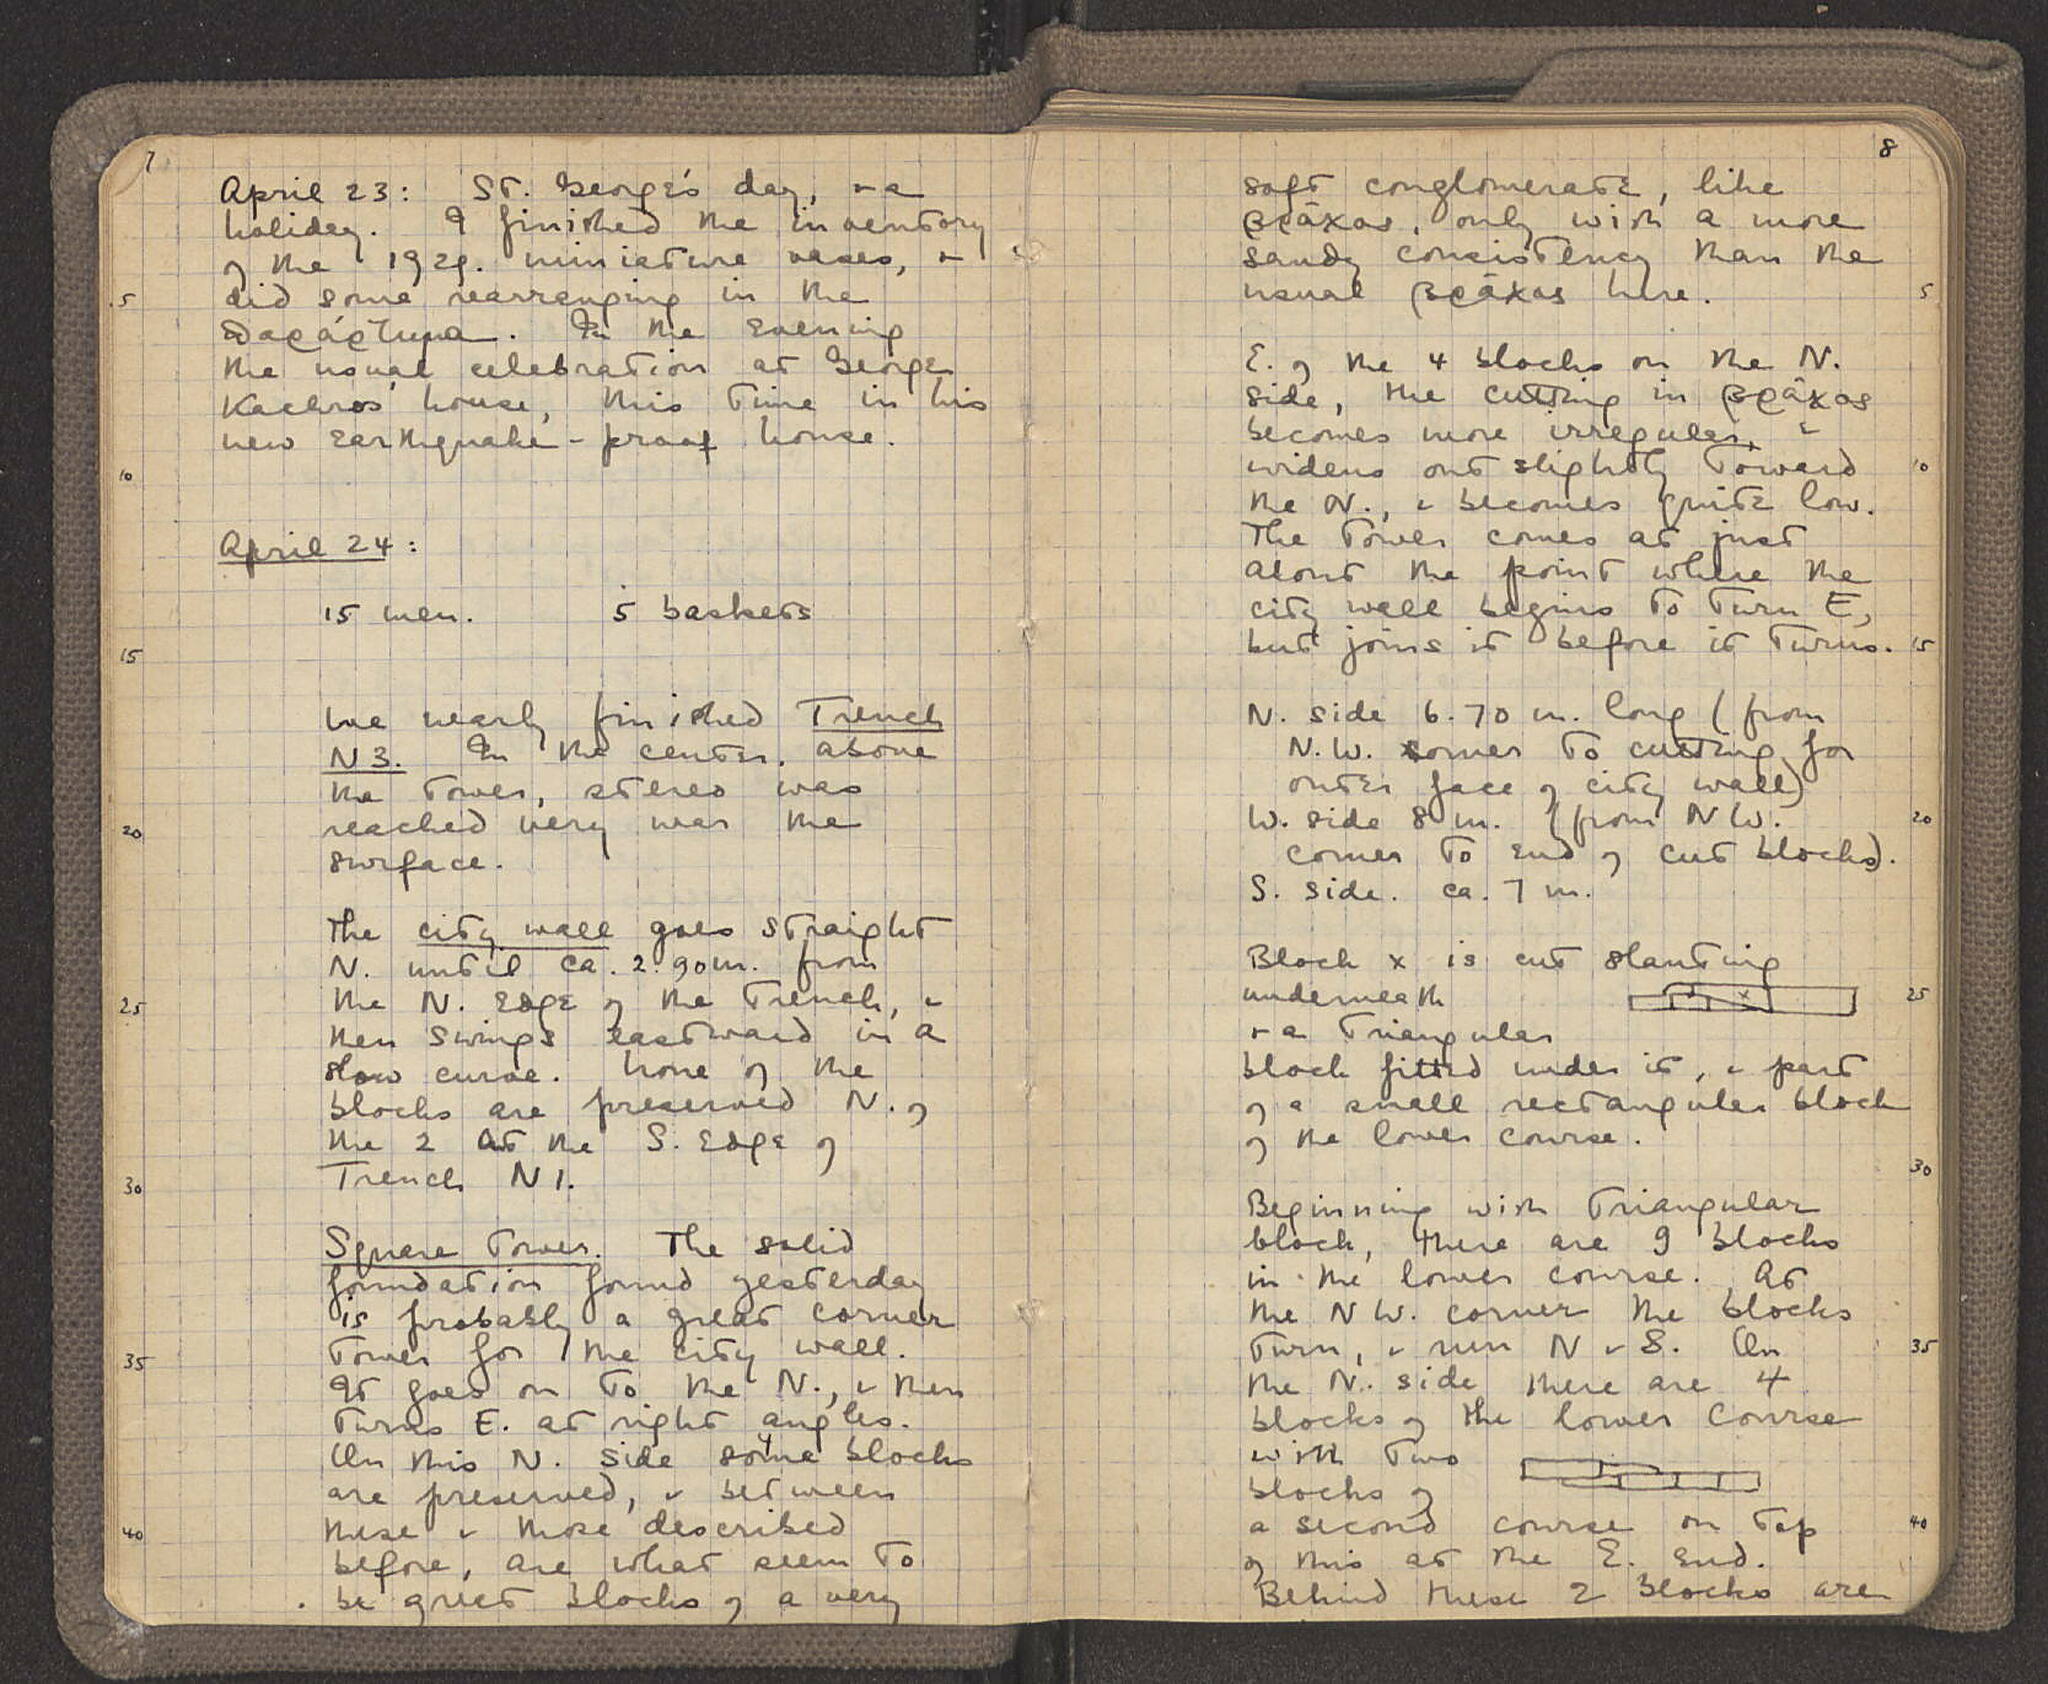 7
April 23: St. George's day, + a
holiday. I finished the inventory
of the 1929. miniature vases, +
5
did some rearranging in the
παράρτημα. In the evening
the usual celebration at George
Kachros' house, this time in his
new earthquake-proof house.
10
April 24:
15 men. 5 baskets
15
We nearly finished Trench
N3. In the center, above
the tower, stereo was
20
reached very near the
surface.
The city wall goes straight
N. until ca. 2.90m. from
25
the N. edge of the trench, +
then swings eastward in a
slow curve. None of the
blocks are preserved N. of
the 2 at the S. edge of
30
Trench N1.
Square Tower. The solid
foundation found yesterday
is probably a great corner
35
tower for the city wall.
It goes on to the N., + then
turns E. at right angles.
On this N. side some blocks
are preserved, + between
40
these + those described
before, are what seem to
be great blocks of a very
8
soft conglomerate, like
βράχος, only with a more
sandy consistency than the
usual βράχος here.
5
E. of the 4 blocks on the N.
side, the cutting in βράχος
becomes more irregular, +
widens out slightly toward
10
the N., + becomes quite low.
The tower comes at just
about the point where the
city wall begins to turn E,
but joins it before it turns.
15
N. side 6.70 m. long (from
N.W. corner to cutting for
outer face of city wall)
W. side 8 m. (from NW.
20
corner to end of cut blocks).
S. side. ca. 7 m.
Block x is cut slanting
underneath
x
25
+ a triangular
block fitted under it, + part
of a small rectangular block
of the lower course.
30
Beginning with triangular
block, there are 9 blocks
in the lower course. At
the NW. corner the blocks
turn, + run N + S. On
35
the N. side there are 4
blocks of the lower course
with two
blocks of
a second course on top
40
of this at the E. end.
Behind these 2 blocks are